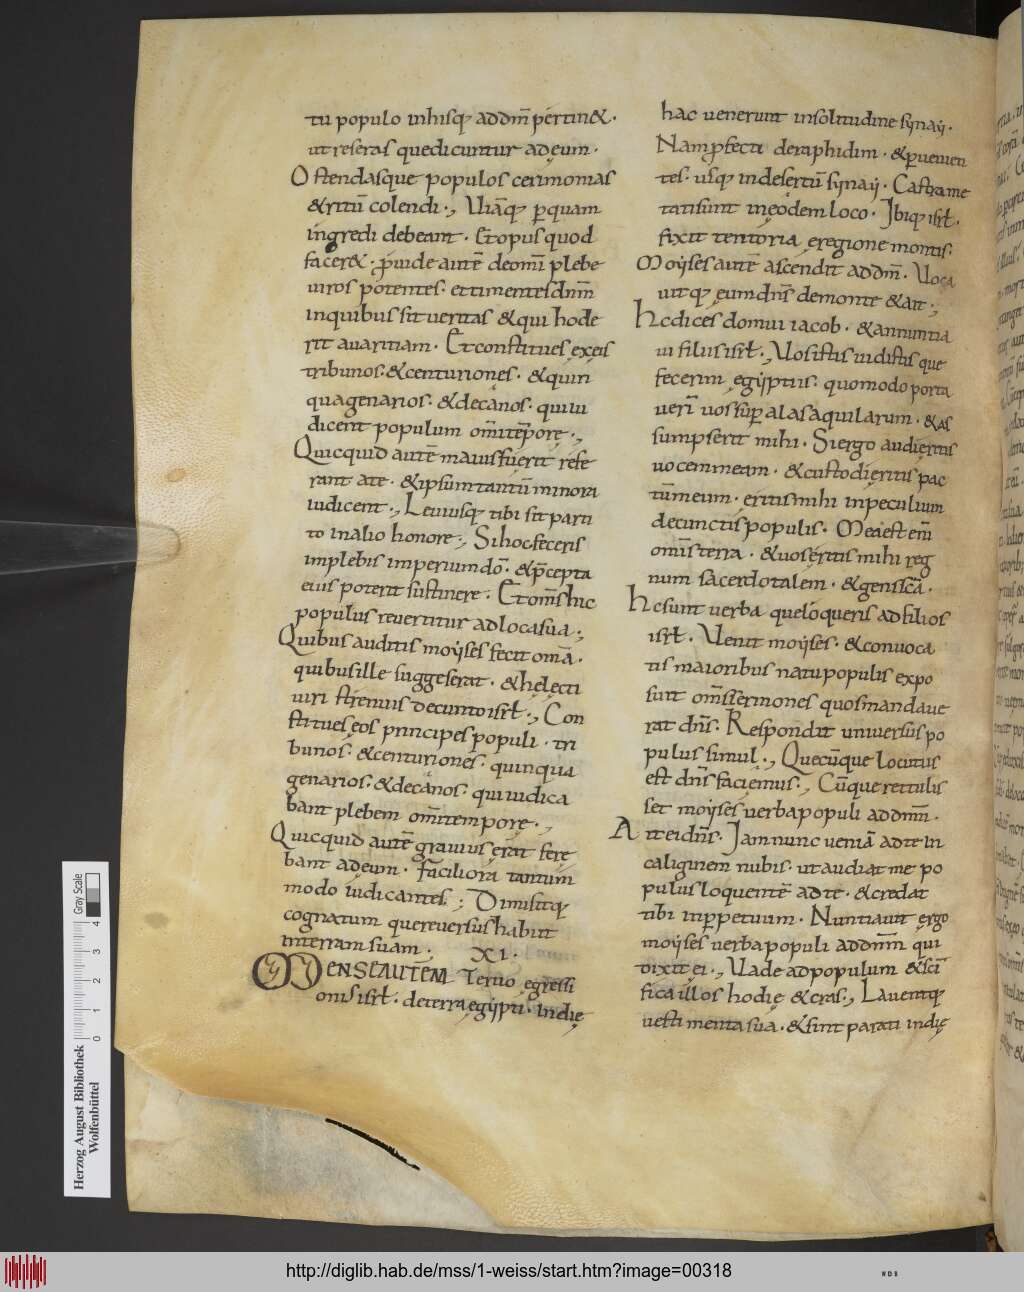 tu populo inhisq; addm̄ pertin&·
ut reseras quedicuntur adeum·
Ostendasque populos cerimonias
&ritū colendi·, Uiāq; ꝑquam
ingredi debeant· Etopus quod
facer&· p̄uide autē deom̄i plebe
uiros potentes· ettimentesdnm̄
inquibus sit ueritas &qui hode
rit auaritiam· Etconstitues ęxeis
tribunos·&centuriones· &quin
quagenarios·&decanos· quiiu
dicent populum om̄itēpore·,
Quicquid autē maiusfuerit refe
rant ate· &ipsumtantū minora
iudicent·, Leuiusq; tibi sit parti
to inalio honore·, Sihocfeceris
implebis imperiumdō· &p̄cepta
eius poterit sustinere· Etom̄s hic
populus reuertitur adlocasua·,
Quibus auditis moyses fecit om̄a·
quibusille suggeserat· &helecti
uiri strenuis decuntoisrł·, Con
stitueseos principes populi· tri
bunos· &centuriones· quinqua
genarios·&decanos· quiiudica
bant plebem om̄item pore·,
Quicquid autē grauius erat fere
bant adeum· Faciliora tantum
modo iudicantes·, Dimisitq;
cognatum quereuersus habiit
interram suam·, XI·
MENSEAUTEM Tertio egressi
onis isrł· deterraegypti· Indie
hac uenerunt insolitudine synaÿ·
Namꝓfecti deraphidim· &ꝑuenien
tes· usq; indesertū synaÿ· Castrame
tatisunt ineodem loco· Ibiq; isrł·
fixit tentoria ęregione montis·
Moyses autē ascendit addm̄· Uoca
uitq; eumdn̄s demonte &ait·,
Hc dices domui iacob· &annuntia
ui filiis isrł·, Uosistis uidistis que
fecerim ęgyptiis· quomodo porta
ueri uos suꝑ alas aquilarum· &as
sumpserit mihi· Siergo audieritis
uocemmeam· &custodieritis pac
tūmeum· eritismihi inpeculium
decunctis populis· Meaest em̄
om̄is terra· &uos eritis mihi reg
num sacerdotalem· &gensscā·
Hc sunt uerba queloqueris adfilios
isrł· Uenit moyses· &conuoca
tis maioribus natu populis expo
suit om̄s sermones quos mandaue
rat dn̄s· Respondit uniuersus po
pulus simul·, Quecūque locutus
est dn̄s faciemus·, Cūque rettulis
set moyses uerbapopuli addmm̄·
Ait eidn̄s· Iam nunc ueniā adte in
caliginem nubis· utaudiat me po
pulus loquentē adte· &credat
tibi inꝑpetuum· Nuntiauit ergo
moyses uerba populi addmm̄ qui
dixit ei·, Uade adpopulum &scī
fica illos hodie &cras·, Lauentq;
uesti menta sua·&sint parati indię
Herzog August Bibliothek
Wolfenbüttel
0 1 2 3 4
Gray Scale
http://diglib.hab.de/mss/1-weiss/start.htm?image=00318